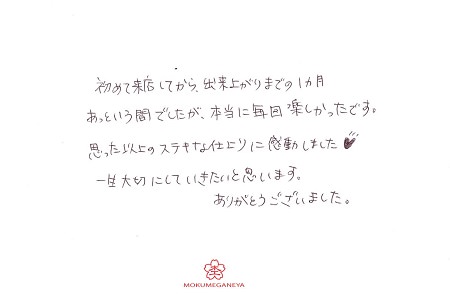 初めて来店してから、出来上がりまでの1カ月
あっという間でしたが、本当に毎回楽しかったです。
思った以上のステキな仕上りに感動しました♥
一生大切にしていきたいと思います。
ありがとうございました。
MOKUMEGANEYA